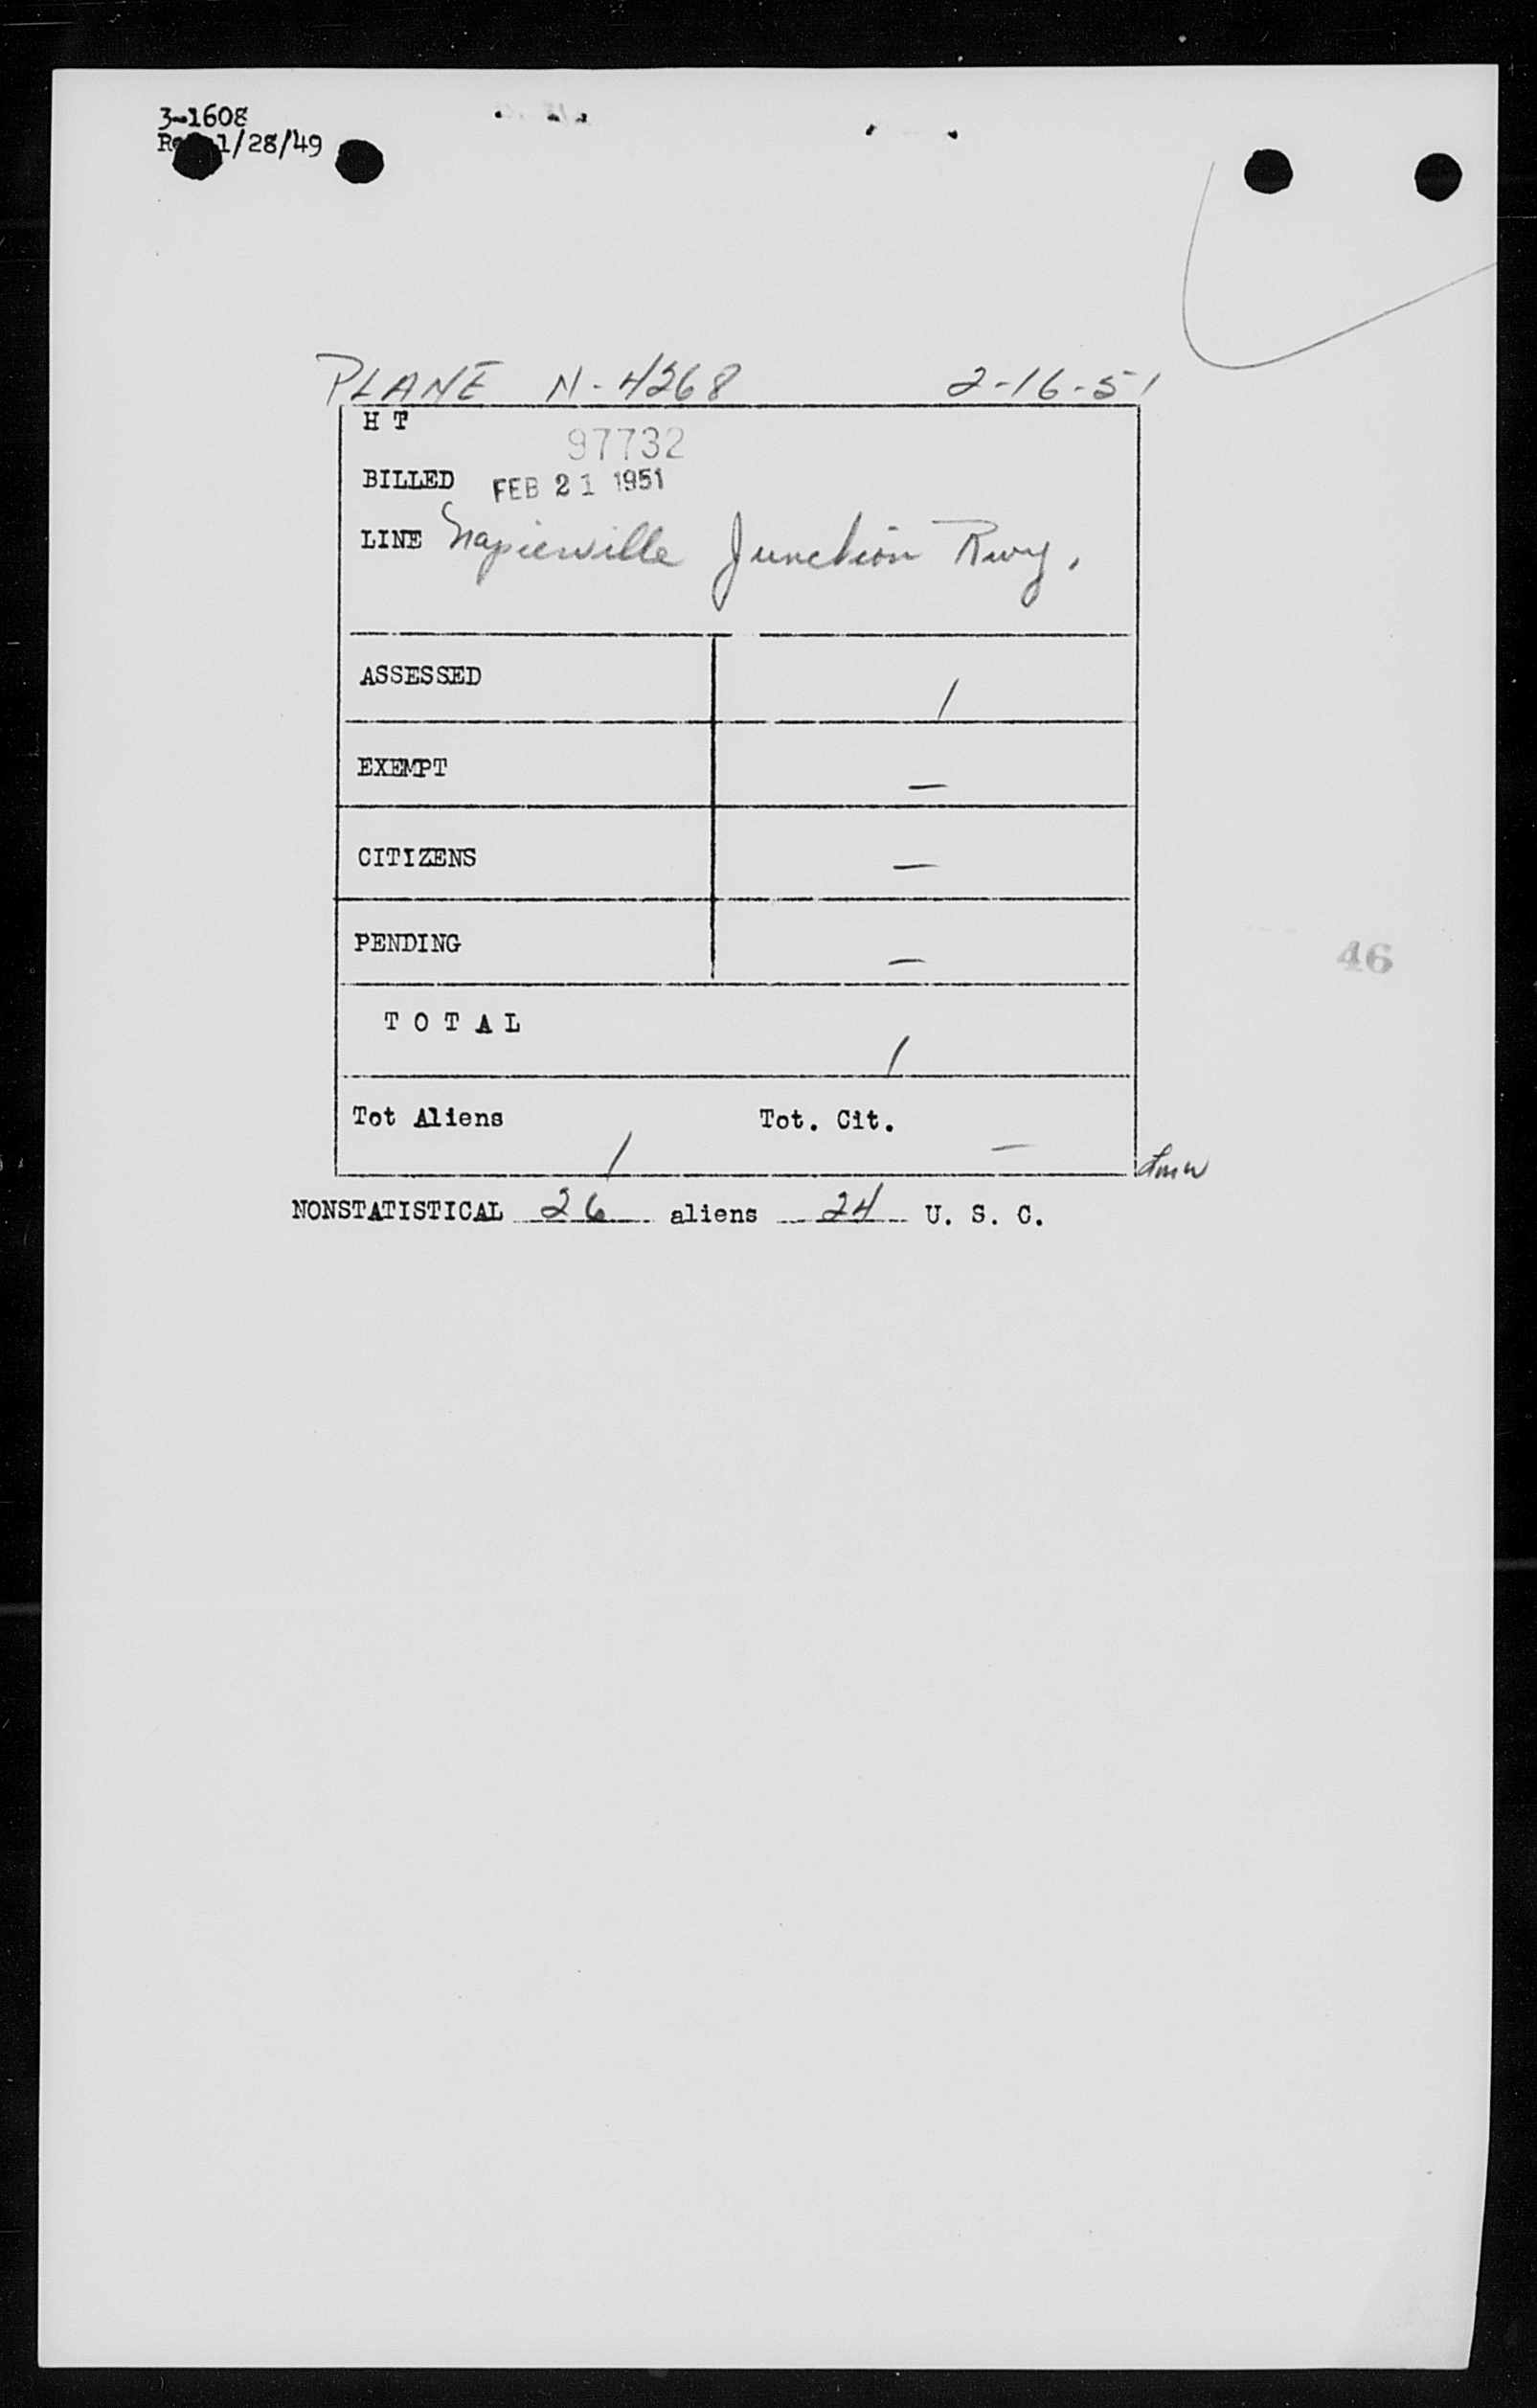 3-1608
1/28/49
PLANE N-4268 2-16-51
H T
97732
BILLED FEB 21 1951
LINE Napierville Junction Rwy.
ASSESSED 1
EXEMPT —
CITIZENS —
PENDING —
46
TOTAL 1
Tot Aliens 1 Tot. Cit. —
NONSTATISTICAL 26 aliens 24 U. S. C.